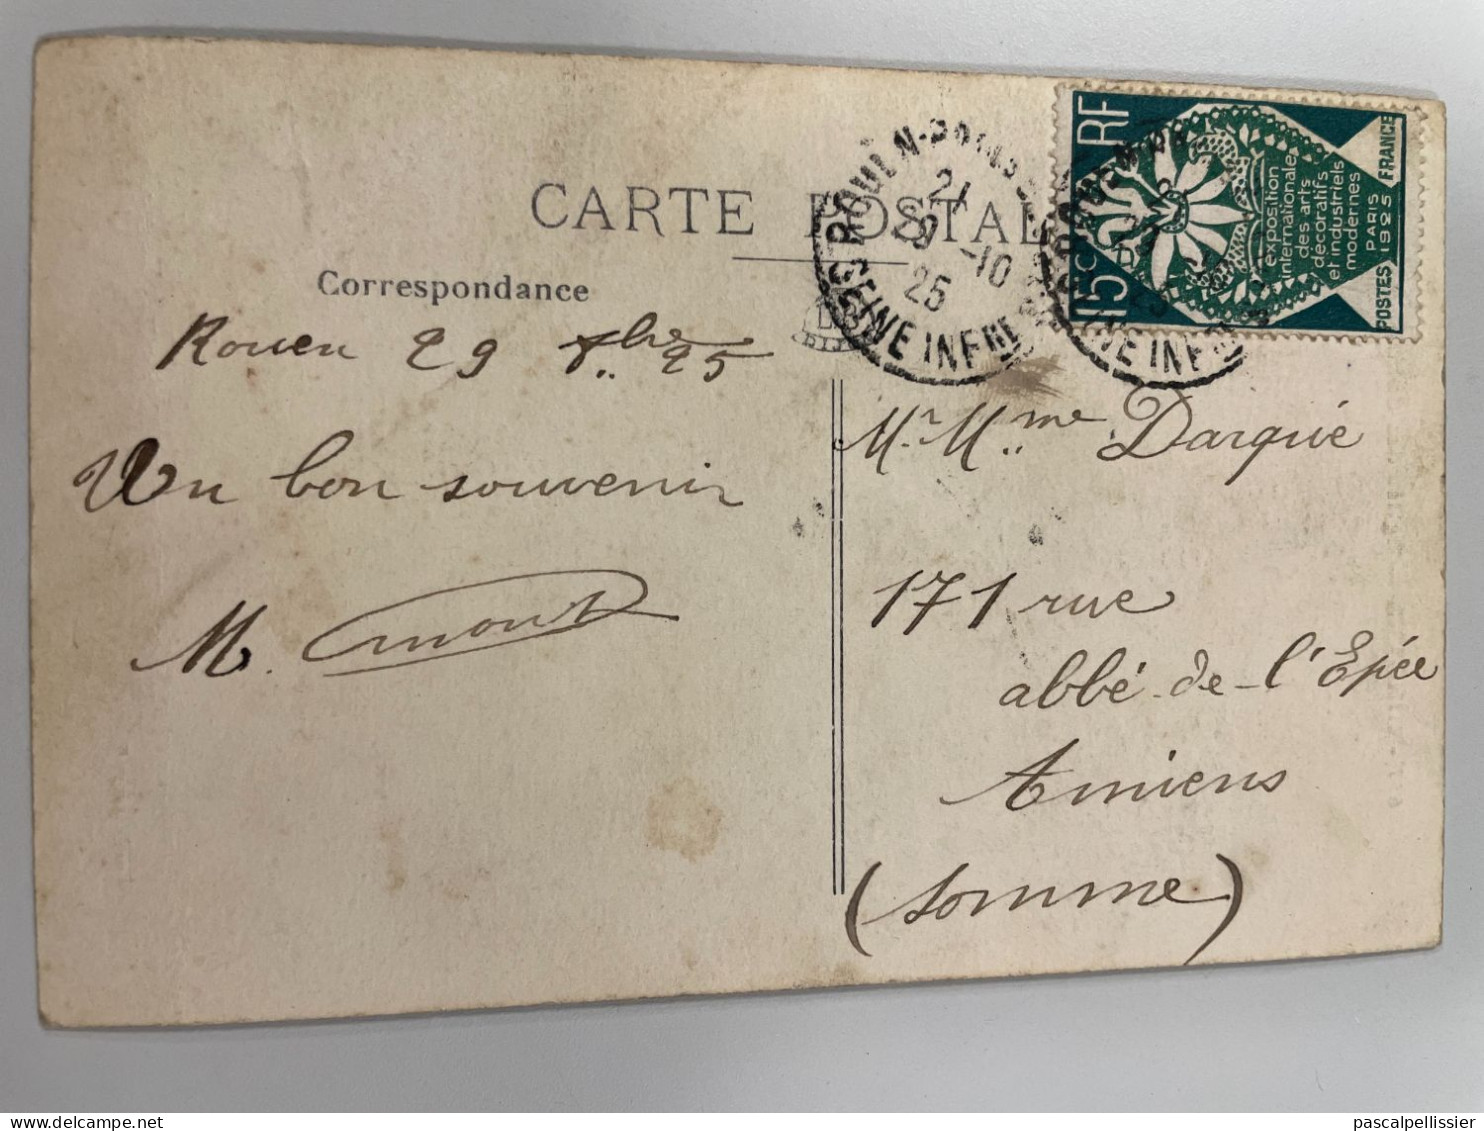 CARTE POSTALE
Correspondance
Rouen 29 8bre 25
Un bon souvenir
M.
Mr. Mme Darquié
171 rue
abbé de l'Epée
Amiens
(Somme)
RF
15c
exposition
internationale
des arts
décoratifs
et industriels
modernes
PARIS
1925
POSTES FRANCE
ROUEN
21
29-10
25
SEINE INFRE
SEINE INFRE
pascalpellissier